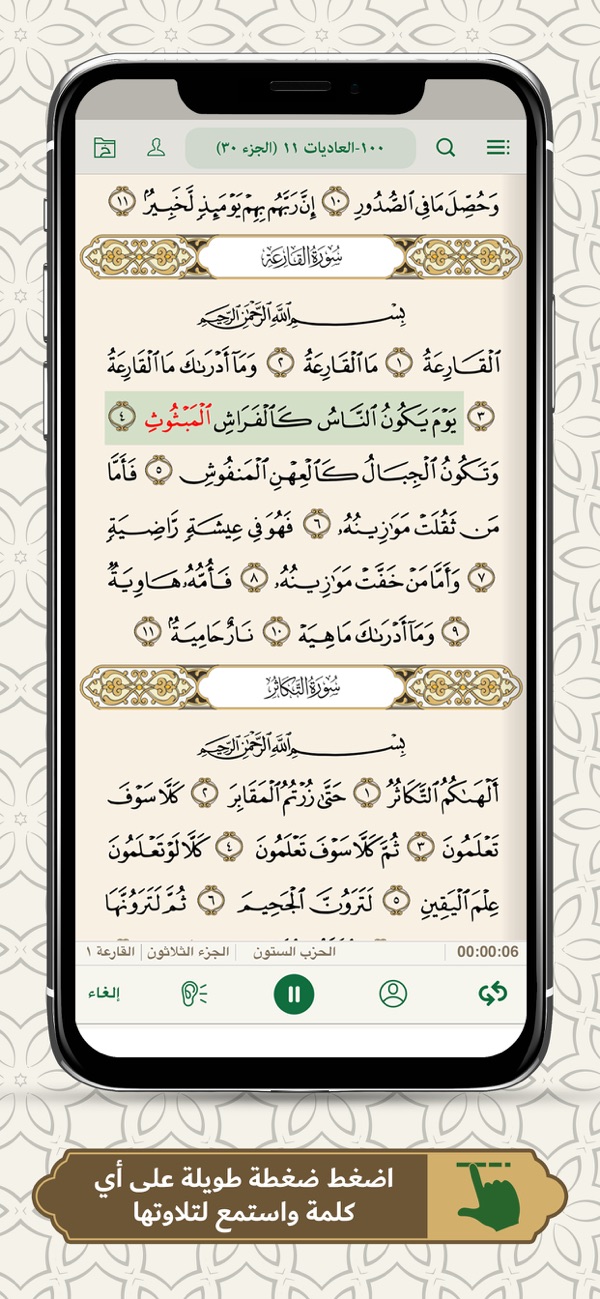 ١٠٠-العاديات ١١ (الجزء ٣٠)
وَحُصِّلَ مَا فِي ٱلصُّدُورِ ١٠ إِنَّ رَبَّهُم بِهِمۡ يَوۡمَئِذٖ لَّخَبِيرُۢ ١١
سُورَةُ القَارِعَةِ
بِسۡمِ ٱللَّهِ ٱلرَّحۡمَٰنِ ٱلرَّحِيمِ
ٱلۡقَارِعَةُ ١ مَا ٱلۡقَارِعَةُ ٢ وَمَآ أَدۡرَىٰكَ مَا ٱلۡقَارِعَةُ
٣ يَوۡمَ يَكُونُ ٱلنَّاسُ كَٱلۡفَرَاشِ ٱلۡمَبۡثُوثِ ٤
وَتَكُونُ ٱلۡجِبَالُ كَٱلۡعِهۡنِ ٱلۡمَنفُوشِ ٥ فَأَمَّا
مَن ثَقُلَتۡ مَوَٰزِينُهُۥ ٦ فَهُوَ فِي عِيشَةٖ رَّاضِيَةٖ
٧ وَأَمَّا مَنۡ خَفَّتۡ مَوَٰزِينُهُۥ ٨ فَأُمُّهُۥ هَاوِيَةٞ
٩ وَمَآ أَدۡرَىٰكَ مَا هِيَهۡ ١٠ نَارٌ حَامِيَةُۢ ١١
سُورَةُ التَّكَاثُرِ
بِسۡمِ ٱللَّهِ ٱلرَّحۡمَٰنِ ٱلرَّحِيمِ
أَلۡهَىٰكُمُ ٱلتَّكَاثُرُ ١ حَتَّىٰ زُرۡتُمُ ٱلۡمَقَابِرَ ٢ كَلَّا سَوۡفَ
تَعۡلَمُونَ ٣ ثُمَّ كَلَّا سَوۡفَ تَعۡلَمُونَ ٤ كَلَّا لَوۡ تَعۡلَمُونَ
عِلۡمَ ٱلۡيَقِينِ ٥ لَتَرَوُنَّ ٱلۡجَحِيمَ ٦ ثُمَّ لَتَرَوُنَّهَا
00:00:06 الحزب الستون الجزء الثلاثون القارعة ١
إلغاء
اضغط ضغطة طويلة على أي
كلمة واستمع لتلاوتها